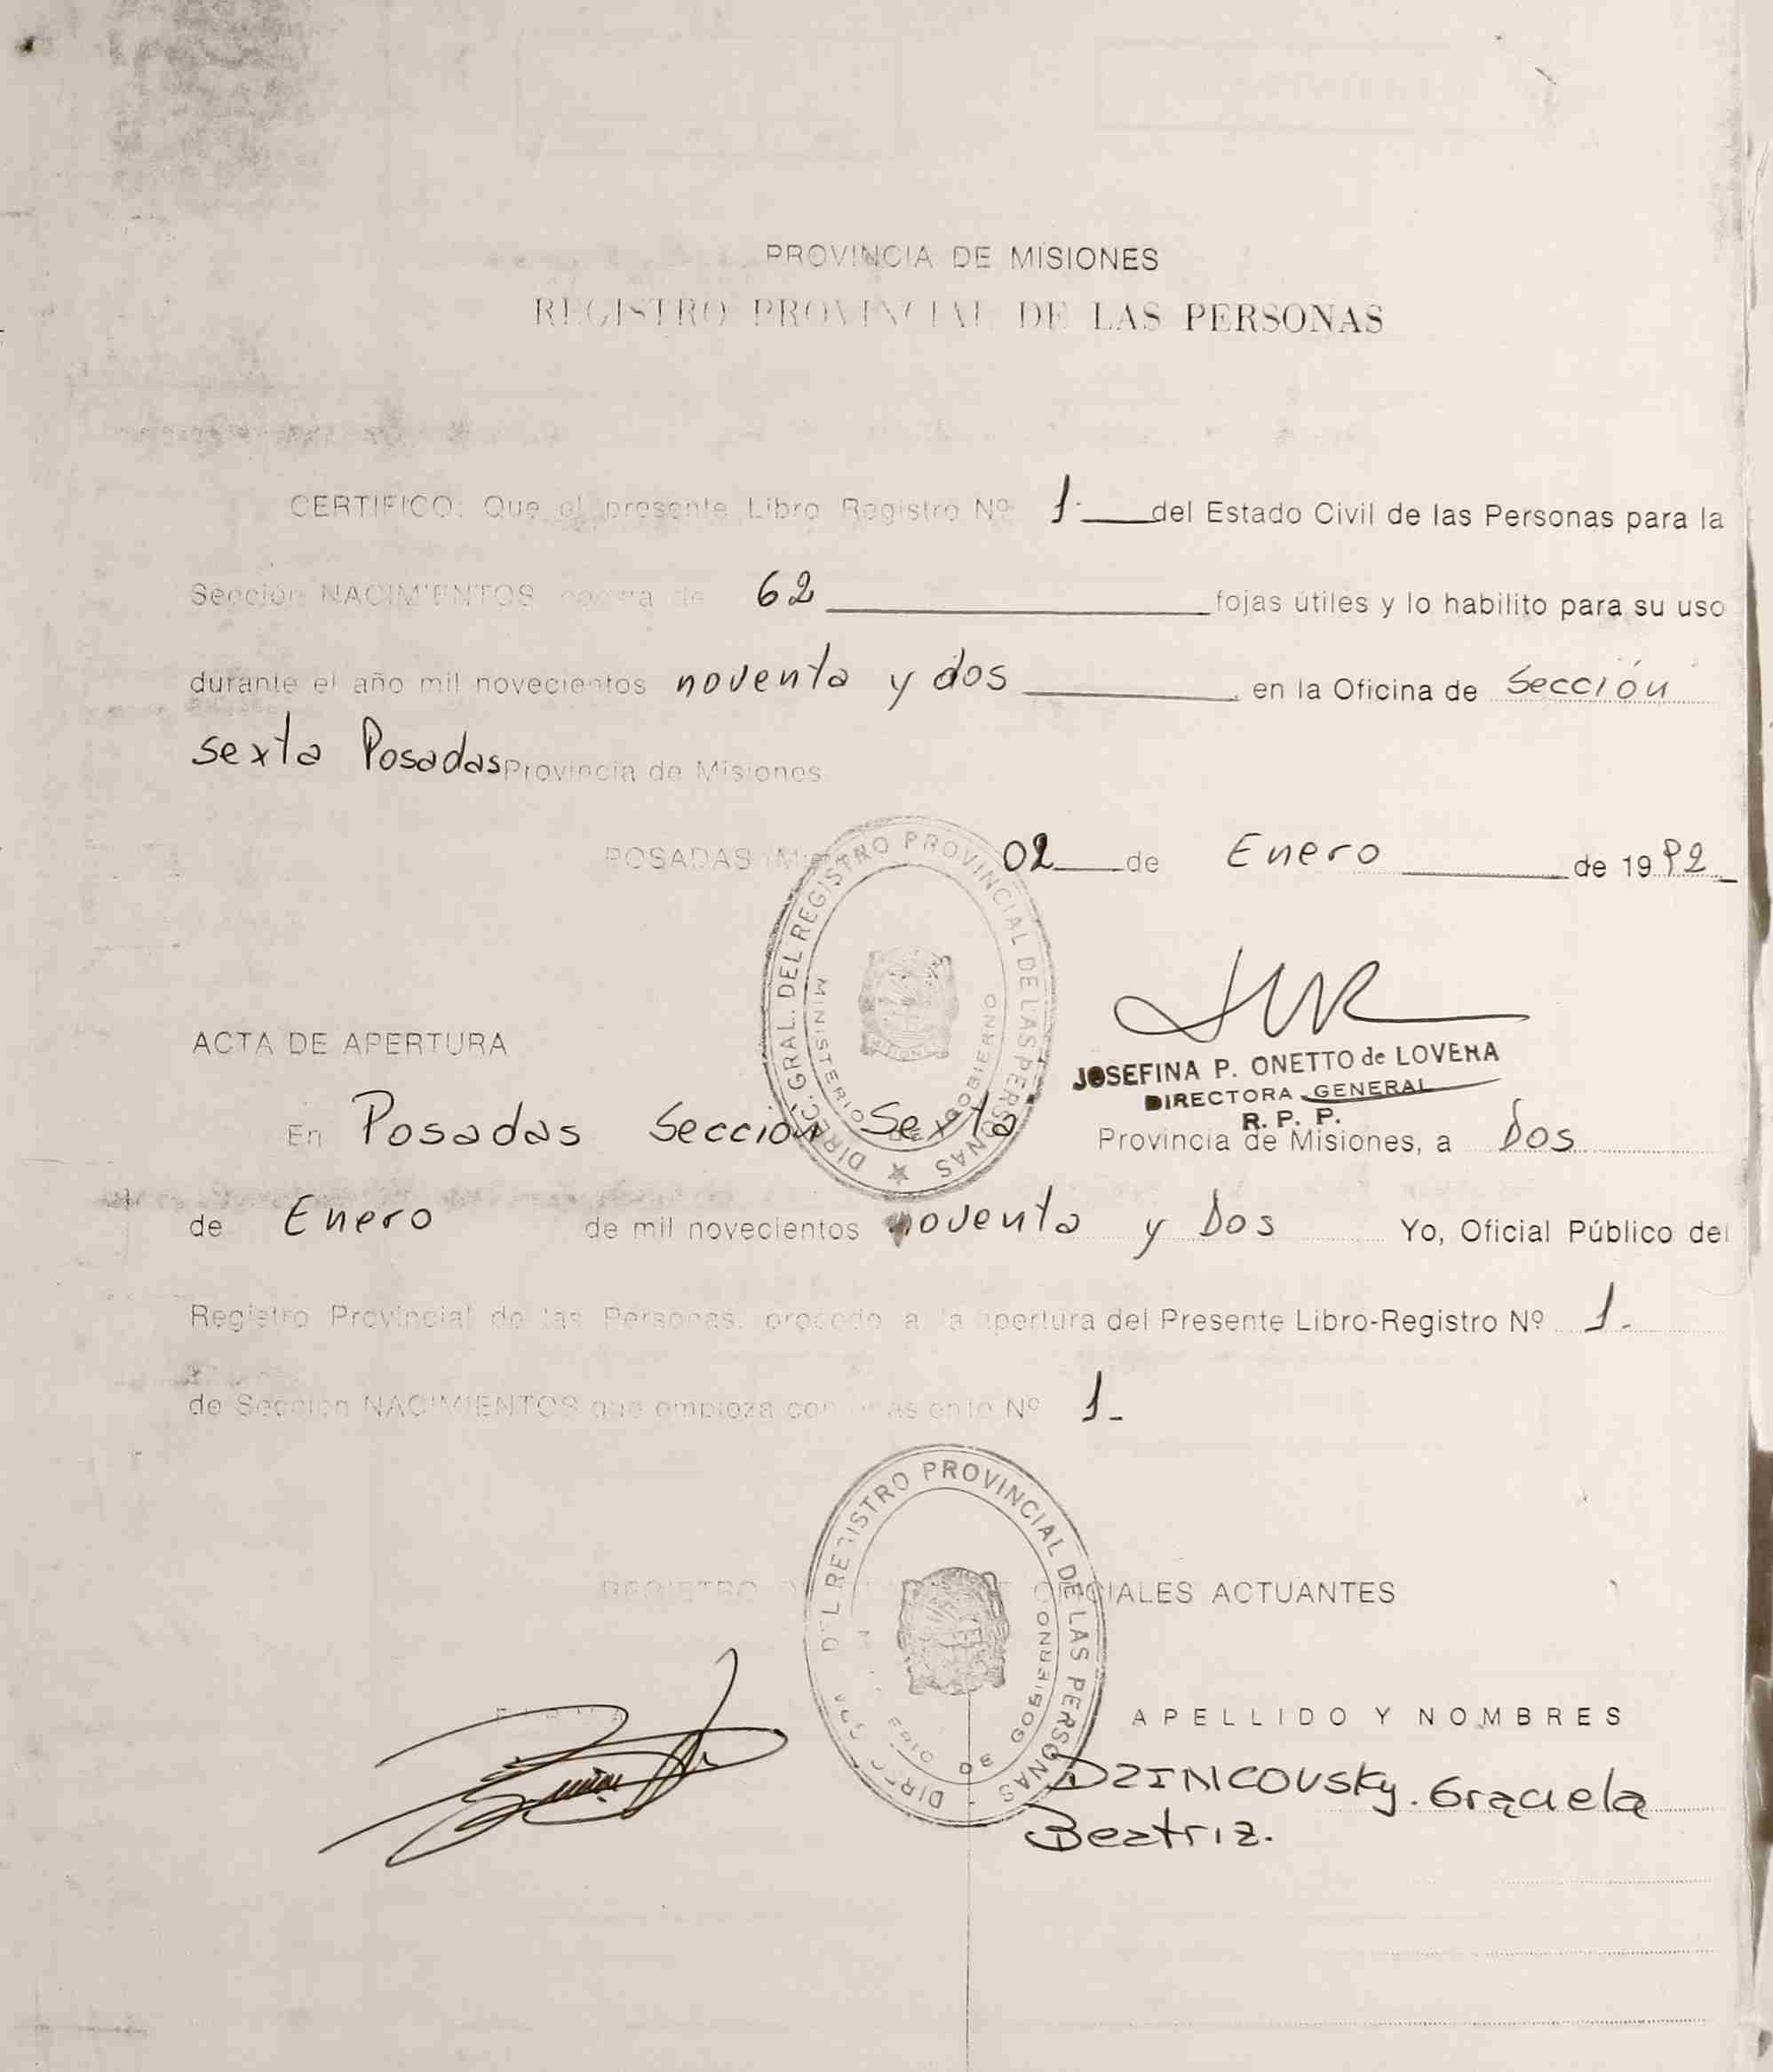 PROVINCIA DE MISIONES
REGISTRO PROVINCIAL DE LAS PERSONAS
CERTIFICO: Que el presente Libro Registro Nº 1. del Estado Civil de las Personas para la
Sección NACIMIENTOS consta de 62 fojas útiles y lo habilito para su uso
durante el año mil novecientos noventa y dos en la Oficina de Sección
sexta Posadas Provincia de Misiones
POSADAS 02 de Enero de 1992
DIREC. GRAL. DEL REGISTRO PROVINCIAL DE LAS PERSONAS
MINISTERIO DE GOBIERNO
JOSEFINA P. ONETTO de LOVERA
DIRECTORA GENERAL
R. P. P.
ACTA DE APERTURA
En Posadas Sección Sexta Provincia de Misiones, a Dos
de Enero de mil novecientos noventa y Dos Yo, Oficial Público del
Registro Provincial de las Personas, procedo a la apertura del Presente Libro-Registro Nº 1.
de Sección NACIMIENTOS que empieza con el asiento Nº 1.
REGISTRO OFICIALES ACTUANTES
REGISTRO PROVINCIAL DE LAS PERSONAS
DE GOBIERNO
APELLIDO Y NOMBRES
DZINCOVSKy. Graciela
Beatriz.